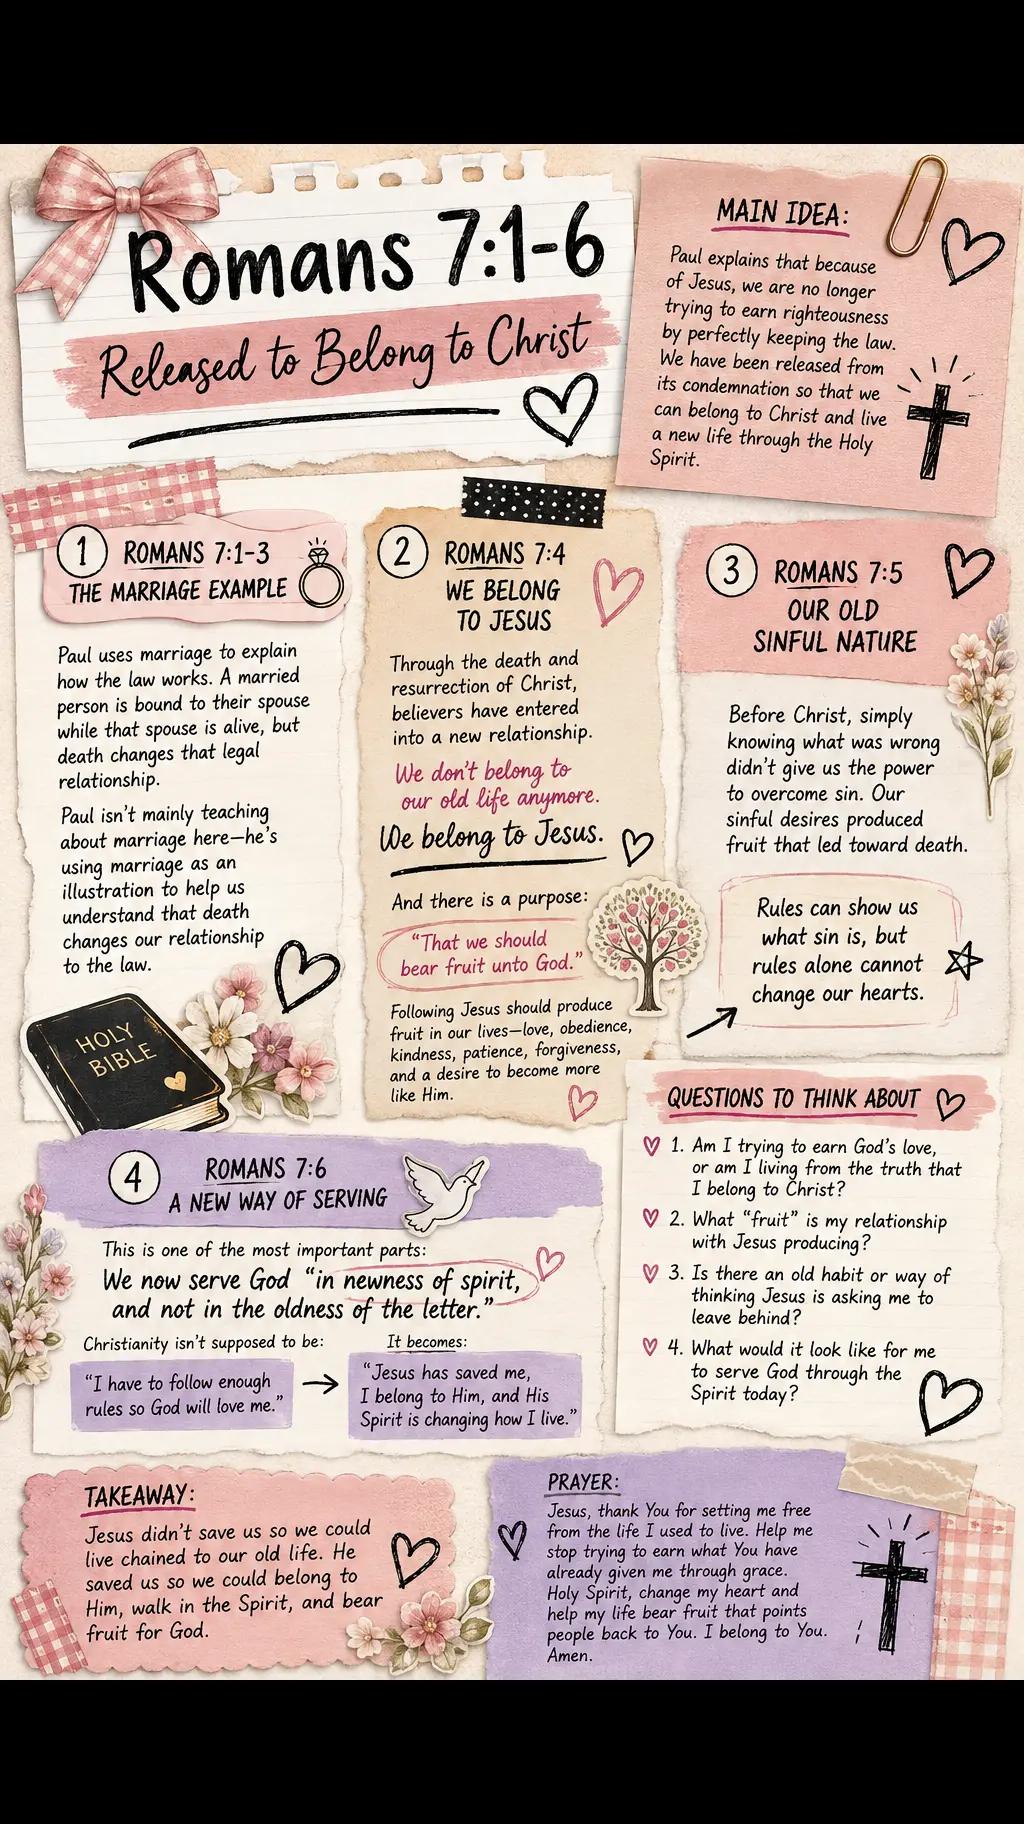 Romans 7:1-6
Released to Belong to Christ
MAIN IDEA:
Paul explains that because
of Jesus, we are no longer
trying to earn righteousness
by perfectly keeping the law.
We have been released from
its condemnation so that we
can belong to Christ and live
a new life through the Holy
Spirit.
1 ROMANS 7:1-3
THE MARRIAGE EXAMPLE
Paul uses marriage to explain
how the law works. A married
person is bound to their spouse
while that spouse is alive, but
death changes that legal
relationship.
Paul isn't mainly teaching
about marriage here—he's
using marriage as an
illustration to help us
understand that death
changes our relationship
to the law.
HOLY
BIBLE
2 ROMANS 7:4
WE BELONG
TO JESUS
Through the death and
resurrection of Christ,
believers have entered
into a new relationship.
We don't belong to
our old life anymore.
We belong to Jesus.
And there is a purpose:
"That we should
bear fruit unto God."
Following Jesus should produce
fruit in our lives—love, obedience,
kindness, patience, forgiveness,
and a desire to become more
like Him.
3 ROMANS 7:5
OUR OLD
SINFUL NATURE
Before Christ, simply
knowing what was wrong
didn't give us the power
to overcome sin. Our
sinful desires produced
fruit that led toward death.
Rules can show us
what sin is, but
rules alone cannot
change our hearts.
4 ROMANS 7:6
A NEW WAY OF SERVING
This is one of the most important parts:
We now serve God "in newness of spirit,
and not in the oldness of the letter."
Christianity isn't supposed to be:
"I have to follow enough
rules so God will love me."
It becomes:
"Jesus has saved me,
I belong to Him, and His
Spirit is changing how I live."
QUESTIONS TO THINK ABOUT
1. Am I trying to earn God's love,
or am I living from the truth that
I belong to Christ?
2. What "fruit" is my relationship
with Jesus producing?
3. Is there an old habit or way of
thinking Jesus is asking me to
leave behind?
4. What would it look like for me
to serve God through the
Spirit today?
TAKEAWAY:
Jesus didn't save us so we could
live chained to our old life. He
saved us so we could belong to
Him, walk in the Spirit, and bear
fruit for God.
PRAYER:
Jesus, thank You for setting me free
from the life I used to live. Help me
stop trying to earn what You have
already given me through grace.
Holy Spirit, change my heart and
help my life bear fruit that points
people back to You. I belong to You.
Amen.